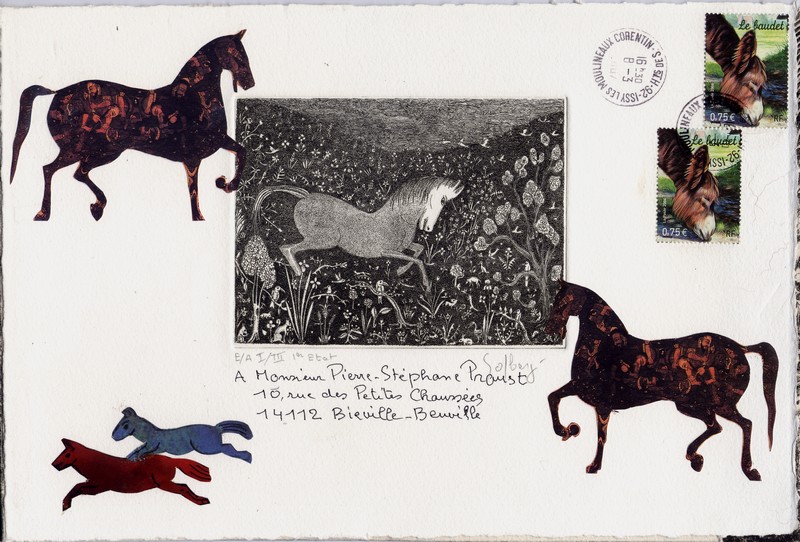 Le baudet d
0.75€
RF
ISSY LES MOULINEAUX CORENTIN
HTS DE S. 92
16 H 30
8 - 3
Le baudet d
0.75€
RF
E/A I/III 1er Etat
A Monsieur Pierre-Stéphane Proust
10, rue des Petites Chaussées
14112 Bieville-Beuville